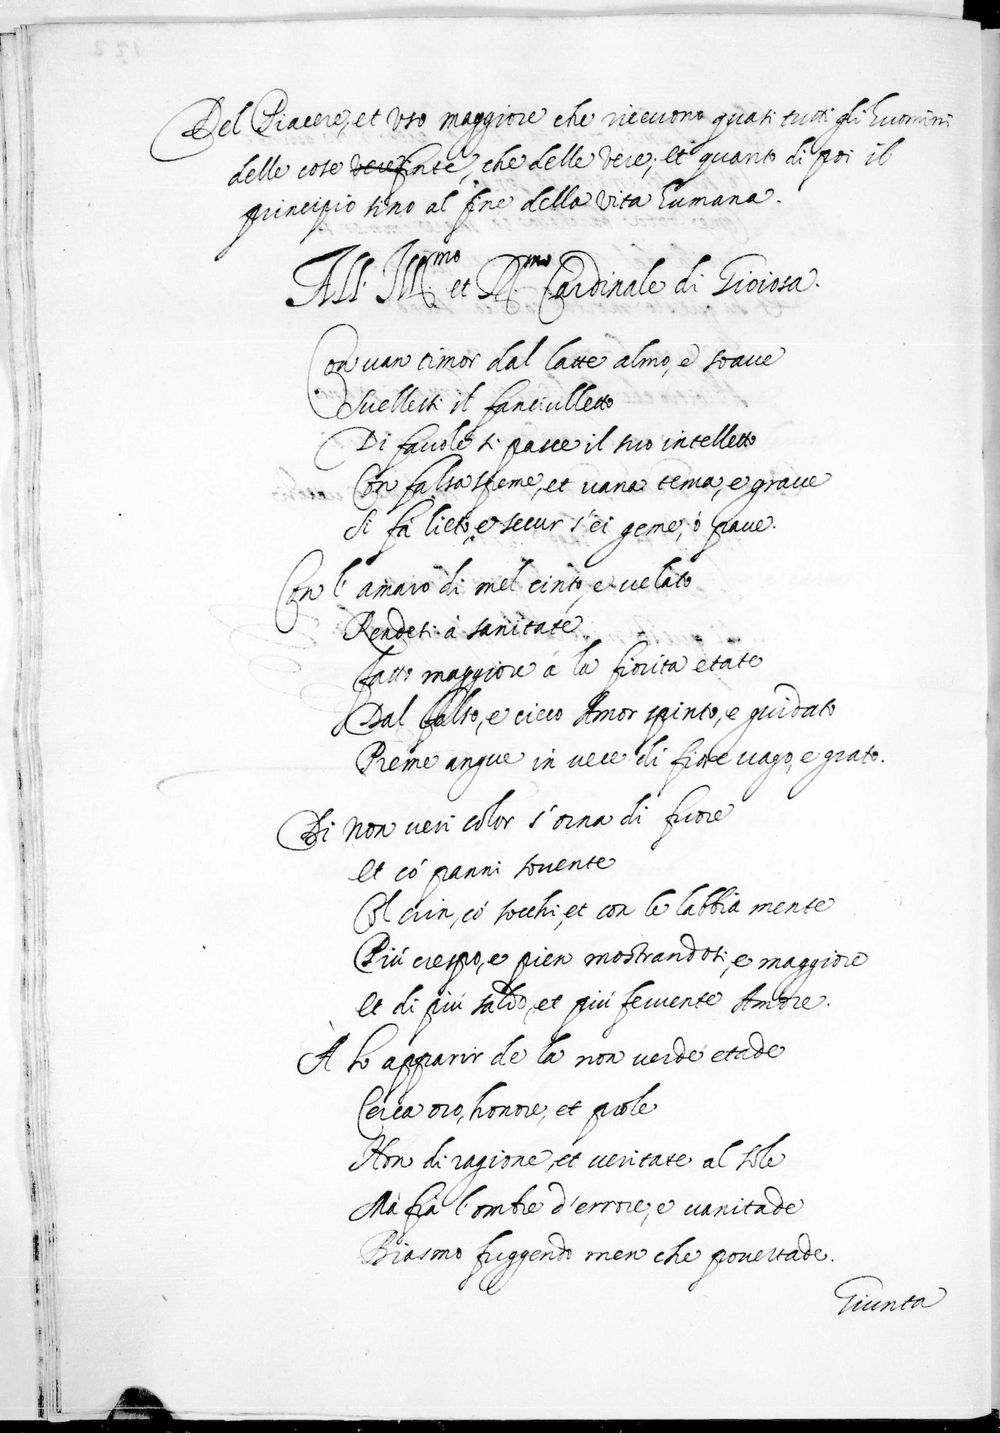 Del Piacere, et uso maggiore che riceuono quasi tutti gli huomini
delle cose vere finte, che delle vere; et quanto di poi il
principio sino al fine della vita humana.
All' Ill.mo et R.mo Cardinale di Gioiosa.
Con uan timor dal latte almo, e soaue
Suellesti il fanciulletto
Di fauole si pasce il suo intelletto
Con falsa speme, et uana tema, e graue
Si fà lieto, e secur s'ei geme, ò paue.
Con l'amaro di mel cinto, e uelato
Rendesi à sanitate
Fatto maggiore à la fiorita etate
Dal falso, e cieco Amor spinto, e guidato
Preme angue in uece di fiore uago, e grato.
Di non ueri color s'orna di fuore
et co' panni souente
Col crin, co' socchi, et con le labbia mente
Più crespo, e pien mostrandosi, e maggiore
et di più saldo, et più feruente Amore.
A lo apparir de la non uerde etade
Cerca oro, honore, et prole
Non di ragione, et ueritate al sole
Mà frà l'ombre d'errore, e uanitade
Biasmo fuggendo men che pouertade.
Giunta